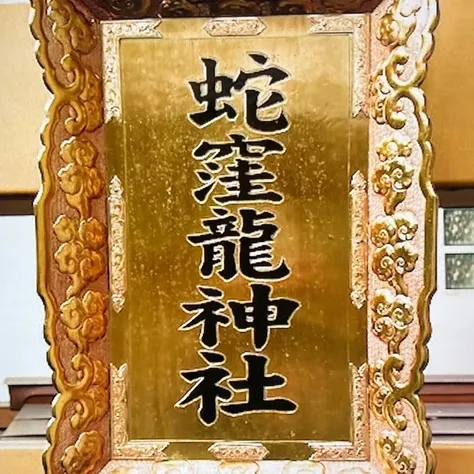 蛇窪龍神社